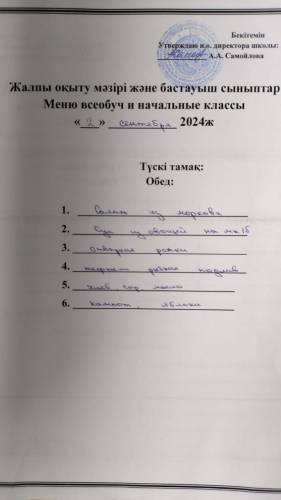 Бекітемін
Утверждаю и.о. директора школы:
А.А. Самойлова
Жалпы оқыту мәзірі және бастауыш сыныптар
Меню всеобуч и начальные классы
« 2 » сентября 2024ж
Түскі тамақ:
Обед:
1. Салат из моркови
2. Суп из овощей на мк/б
3. отварные рожки
4. подлив
5. хлеб, сыр, масло
6. компот, яблоки